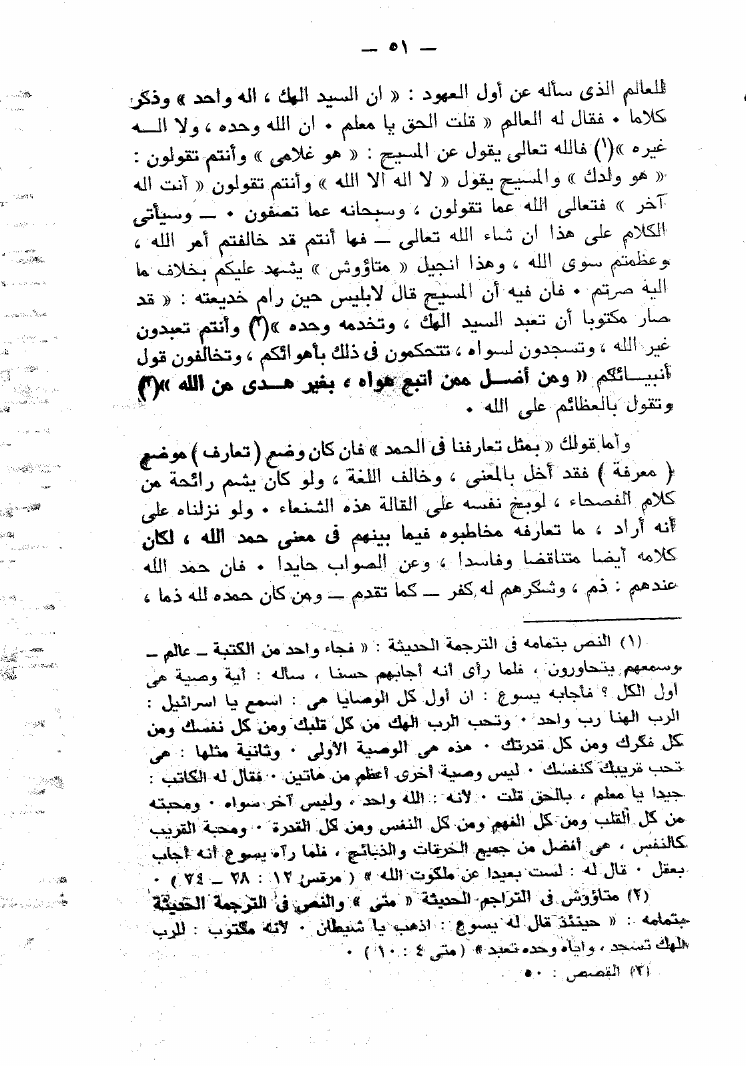 — ٥١ —
للعالم الذى سأله عن أول العهود : « ان السيد الهك ، اله واحد » وذكر
كلاما ٠ فقال له العالم « قلت الحق يا معلم ٠ ان الله وحده ، ولا الــه
غيره »(١) فالله تعالى يقول عن المسيح : « هو غلامى » وأنتم تقولون :
« هو ولدك » والمسيح يقول « لا اله الا الله » وأنتم تقولون « أنت اله
آخر » فتعالى الله عما تقولون ، وسبحانه عما تصفون ٠ — وسيأتى
الكلام على هذا ان شاء الله تعالى — فها أنتم قد خالفتم أمر الله ،
وعظمتم سوى الله ، وهذا انجيل « متاؤوش » يشهد عليكم بخلاف ما
اليه صرتم ٠ فان فيه أن المسيح قال لابليس حين رام خديعته : « قد
صار مكتوبا أن تعبد السيد الهك ، وتخدمه وحده »(٢) وأنتم تعبدون
غير الله ، وتسجدون لسواه ، تتحكمون فى ذلك بأهوائكم ، وتخالفون قول
أنبيــائكم « ومن أضــل ممن اتبع هواه ، بغير هــدى من الله »(٣)
وتقول بالعظائم على الله ٠
وأما قولك « بمثل تعارفنا فى الحمد » فان كان وضع ( تعارف ) موضع
( معرفة ) فقد أخل بالمعنى ، وخالف اللغة ، ولو كان يشم رائحة من
كلام الفصحاء ، لوبخ نفسه على القالة هذه الشنعاء ٠ ولو نزلناه على
أنه أراد ، ما تعارفه مخاطبوه فيما بينهم فى معنى حمد الله ، لكان
كلامه أيضا متناقضا وفاسدا ، وعن الصواب حايدا ٠ فان حمد الله
عندهم : ذم ، وشكرهم له كفر — كما تقدم — ومن كان حمده لله ذما ،
(١) النص بتمامه فى الترجمة الحديثة : « فجاء واحد من الكتبة — عالم —
وسمعهم يتحاورون ، فلما رأى أنه أجابهم حسنا ، سأله : أية وصية هى
أول الكل ؟ فأجابه يسوع : ان أول كل الوصايا هى : اسمع يا اسرائيل :
الرب الهنا رب واحد ٠ وتحب الرب الهك من كل قلبك ومن كل نفسك ومن
كل فكرك ومن كل قدرتك ٠ هذه هى الوصية الأولى ٠ وثانية مثلها : هى
تحب قريبك كنفسك ٠ ليس وصية أخرى أعظم من هاتين ٠ فقال له الكاتب :
جيدا يا معلم ، بالحق قلت ٠ لأنه : الله واحد ، وليس آخر سواه ٠ ومحبته
من كل القلب ومن كل الفهم ومن كل النفس ومن كل القدرة ٠ ومحبة القريب
كالنفس ، هى أفضل من جميع المحرقات والذبائح ، فلما رآه يسوع أنه أجاب
بعقل ٠ قال له : لست بعيدا عن ملكوت الله » ( مرقس ١٢ : ٢٨ — ٣٤ ) ٠
(٢) متاؤوش فى التراجم الحديثة « متى » والنص فى الترجمة الحديثة
بتمامه : « حينئذ قال له يسوع : اذهب يا شيطان ٠ لأنه مكتوب : للرب
الهك تسجد ، واياه وحده تعبد » ( متى ٤ : ١٠ ) ٠
(٣) القصص : ٥٠